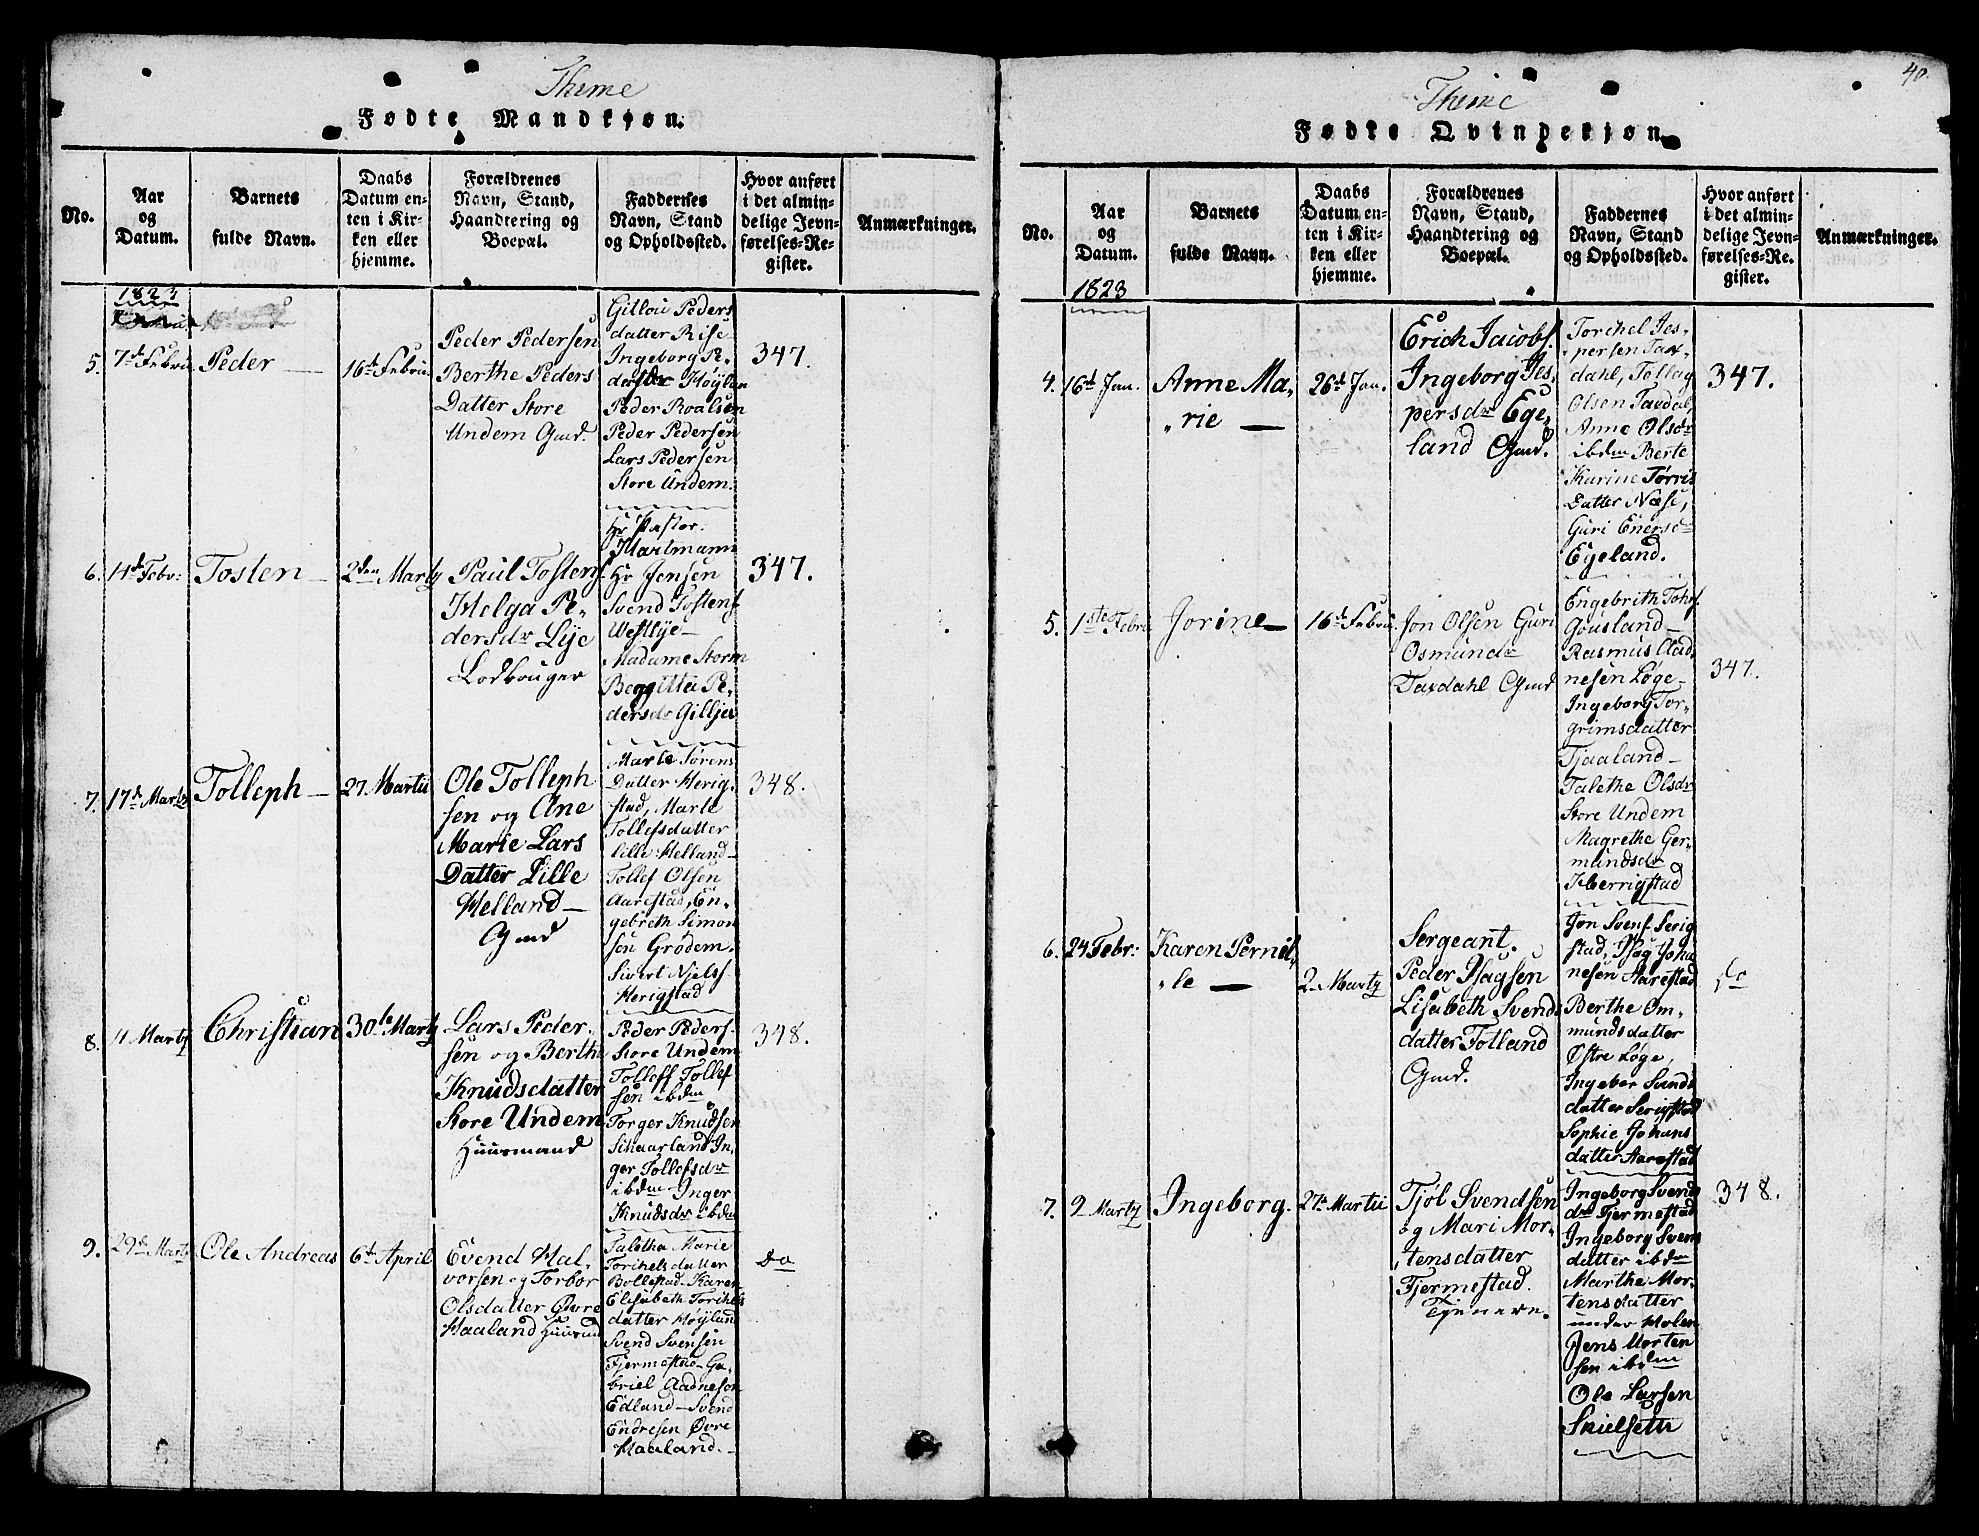 Thime
Fødte Mandkjøn.
No.
Aar
og
Datum.
Barnets
fulde Navn.
Daabs
Datum en-
ten i Kir-
ken eller
hjemme.
Forældrenes
Navn, Stand,
Haandtering og
Boepæl.
Faddernes
Navn, Stand
og Opholdssted.
Hvor anført
i det almin-
delige Jevn-
førelses-Re-
gister.
Anmærkninger.
1823
5.
7d Febru
Peder —
16d Febru.
Peder Pedersen
Berthe Peders
Datter Store
Undem Gmd.
Gillou Peders
datter Rise
Ingeborg Pe-
dersdr Høyland
Peder Roalsen
Peder Pedersen
Lars Pedersen
Store Undem.
347.
6.
14d Febr:
Tosten —
2den Marty
Paul Tostens.
Helga Pe-
dersdr Lye
Lodbruger
Hr Pastor
Hartmann
Hr Jensen
Svend Tostens.
Westlye —
Madame Storm
Beggitta Pe-
dersdr Gilljer
347.
7.
17d Marty
Tolleph —
27. Martii
Ole Tolleph
sen og Ane
Marie Lars
Datter Lille
Helland —
Gmd
Marte Sørens
Datter Herig-
stad, Marte
Tollefsdatter
lille Helland —
Tollef Olsen
Aarestad, En-
gebreth Simon
sen Grødem.
Sivert Niels.
Herigstad
348.
8.
11 Marty
Christian
30te Marty
Lars Peder-
sen og Berthe
Knudsdatter
Store Undem
Huusmand
Peder Peders.
Store Undem
Tolleff Tollef
sen ibdm
Torger Knudsen
Schaarland In-
ger Tollefsdr
ibdm Inger
Knudsdr ibdm
348.
9.
29d Marty
Ole Andreas
6d April
Evend Hal-
vorsen og Torbor
Olsdatter Øvre
Haaland Huusmd
Taletha Marie
Torchelsdatter
Bollestad Karen
Elisabeth Torchels
datter Høyland
Svend Svensen
Fjermestad — Ga-
briel Aadnesen
Edland — Svend
Endresen Øvre
Haaland. —
do
40.
Thime
Fødte Qvindekjøn.
No.
Aar
og
Datum.
Barnets
fulde Navn.
Daabs
Datum en-
ten i Kir-
ken eller
hjemme.
Forældrenes
Navn, Stand,
Haandtering og
Boepæl.
Faddernes
Navn, Stand
og Opholdssted.
Hvor anført
i det almin-
delige Jevn-
førelses-Re-
gister.
Anmærkninger.
1823
4.
16d Jan.
Anne Ma-
„rie —
26d Jan.
Erich Jacobs.
Ingeborg Jes-
persdr Ege-
land Gmd.
Torchel Jes-
persen Tax-
dahl, Tollag
Olsen Taxdal,
Anne Olsdr
ibdm Berte
Karine Tørris
Datter Næse,
Guri Enersd
Egeland.
347.
5.
1ste Febr
Jorine —
16d Febru.
Jon Olsen Guri
Osmundr
Taxdahl Gmd
Engebrith Tohs.
Gousland —
Rasmus Aad
nesen Løge —
Ingeborg Tor-
grimsdatter
Tjaaland —
Talethe Olsdr
Store Undem
Magrethe Ger-
mundsdr
Kherrigstad
347.
6.
24 Febr:
Karen Pernil-
„le —
2 Marty
Sergeant.
Peder Isagsen
Lisabeth Svends
datter Totland
Gmd.
Jon Svens. Serig
stad, Isag Joha
nesen Aarestad
Berthe Om-
mundsdatter
Østre Løge,
Ingebor Svends
datter Serigstad
Sophie Johans
datter Aarestad
do
7.
9 Marty
Ingeborg.
27de Martii
Tjøl Svendsen
og Mari Mor-
tensdatter
Fjermestad.
Tjenere.
Ingeborg Svends
dr Fjermestad
Ingeborg Svens
datter ibdm
Marthe Mor-
tensdatter
under Holen
Jens Morten
sen ibdm
Ole Larsen
Skielseth
348.